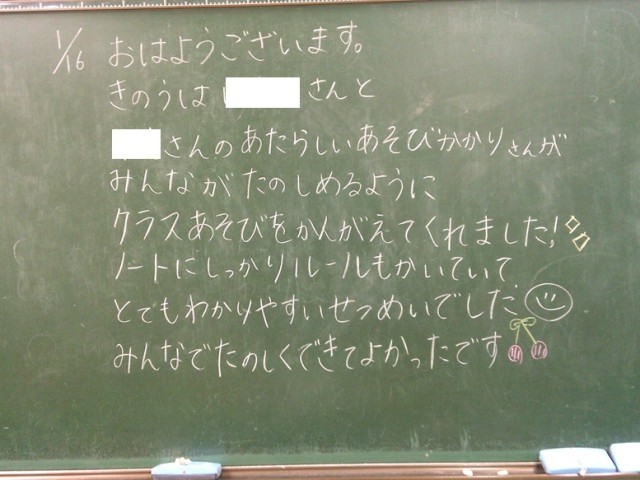 1/16 おはようございます。
きのうは さんと
さんのあたらしいあそびかかりさんが
みんながたのしめるように
クラスあそびをかんがえてくれました!
ノートにしっかりルールもかいていて、
とてもわかりやすいせつめいでした
みんなでたのしくできてよかったです